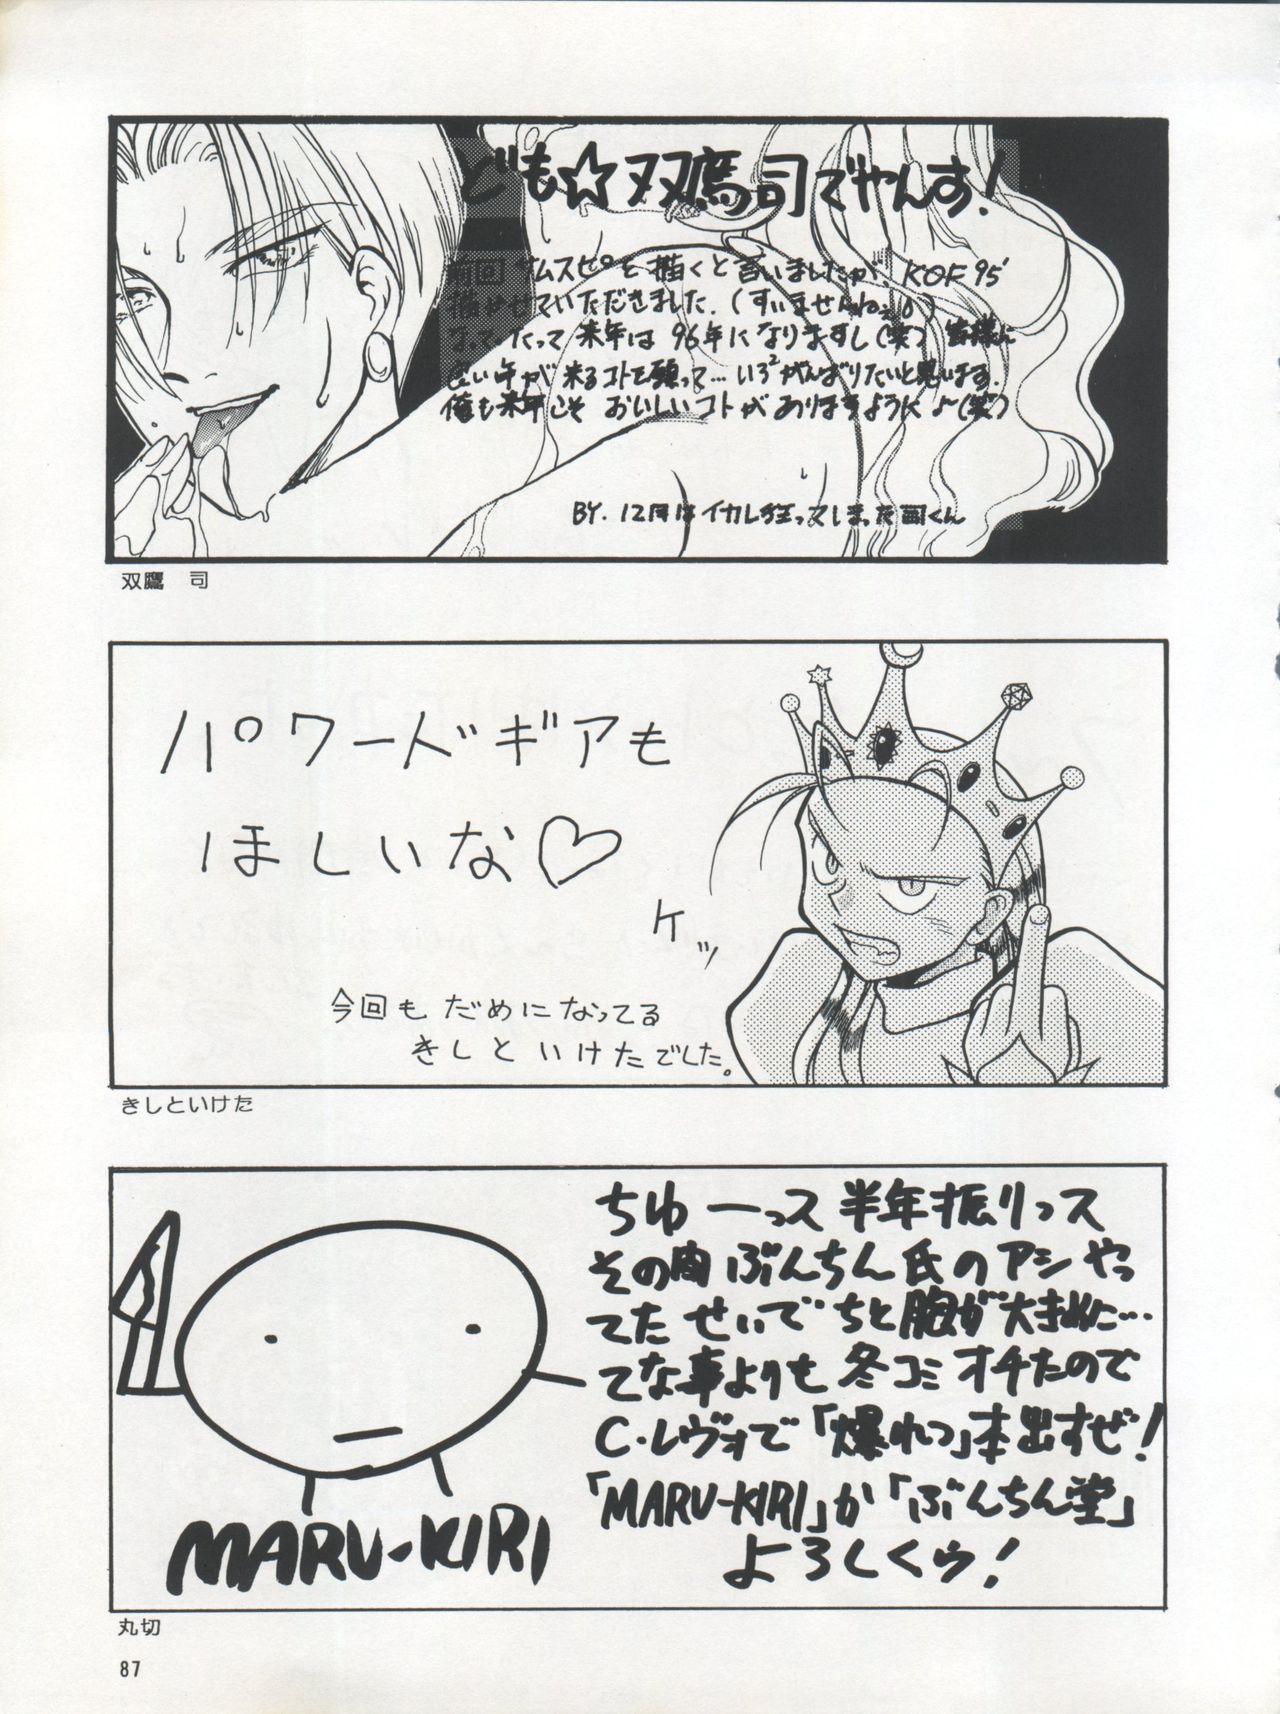 ども☆双鷹司でやんす!
前回サムスピを描くと言いましたが KOF95'
描かせていただきました.(すいませんねェ)
なってったって来年は96年になりますし(笑) 皆様に
良い年が来るコトを願って…いろ²がんばりたいと思います.
俺も来年こそ おいしいコトがありますように♪〜(笑)
BY. 12月はイカレ狂ってしまった司くん
双鷹 司
パワードギアも
ほしいな♡
ケッ
今回もだめになってる
きしといけたでした。
きしといけた
ちゅーっス 半年振りっス
その間ぶんちん氏のアシやっ
てたせいでちと胸が大きめに…
てな事よりも冬コミオチたので
C・レヴォで「爆れつ」本出すぜ!
「MARU-KIRI」か「ぶんちん堂」
よろしくゥ!
MARU-KIRI
丸切
87